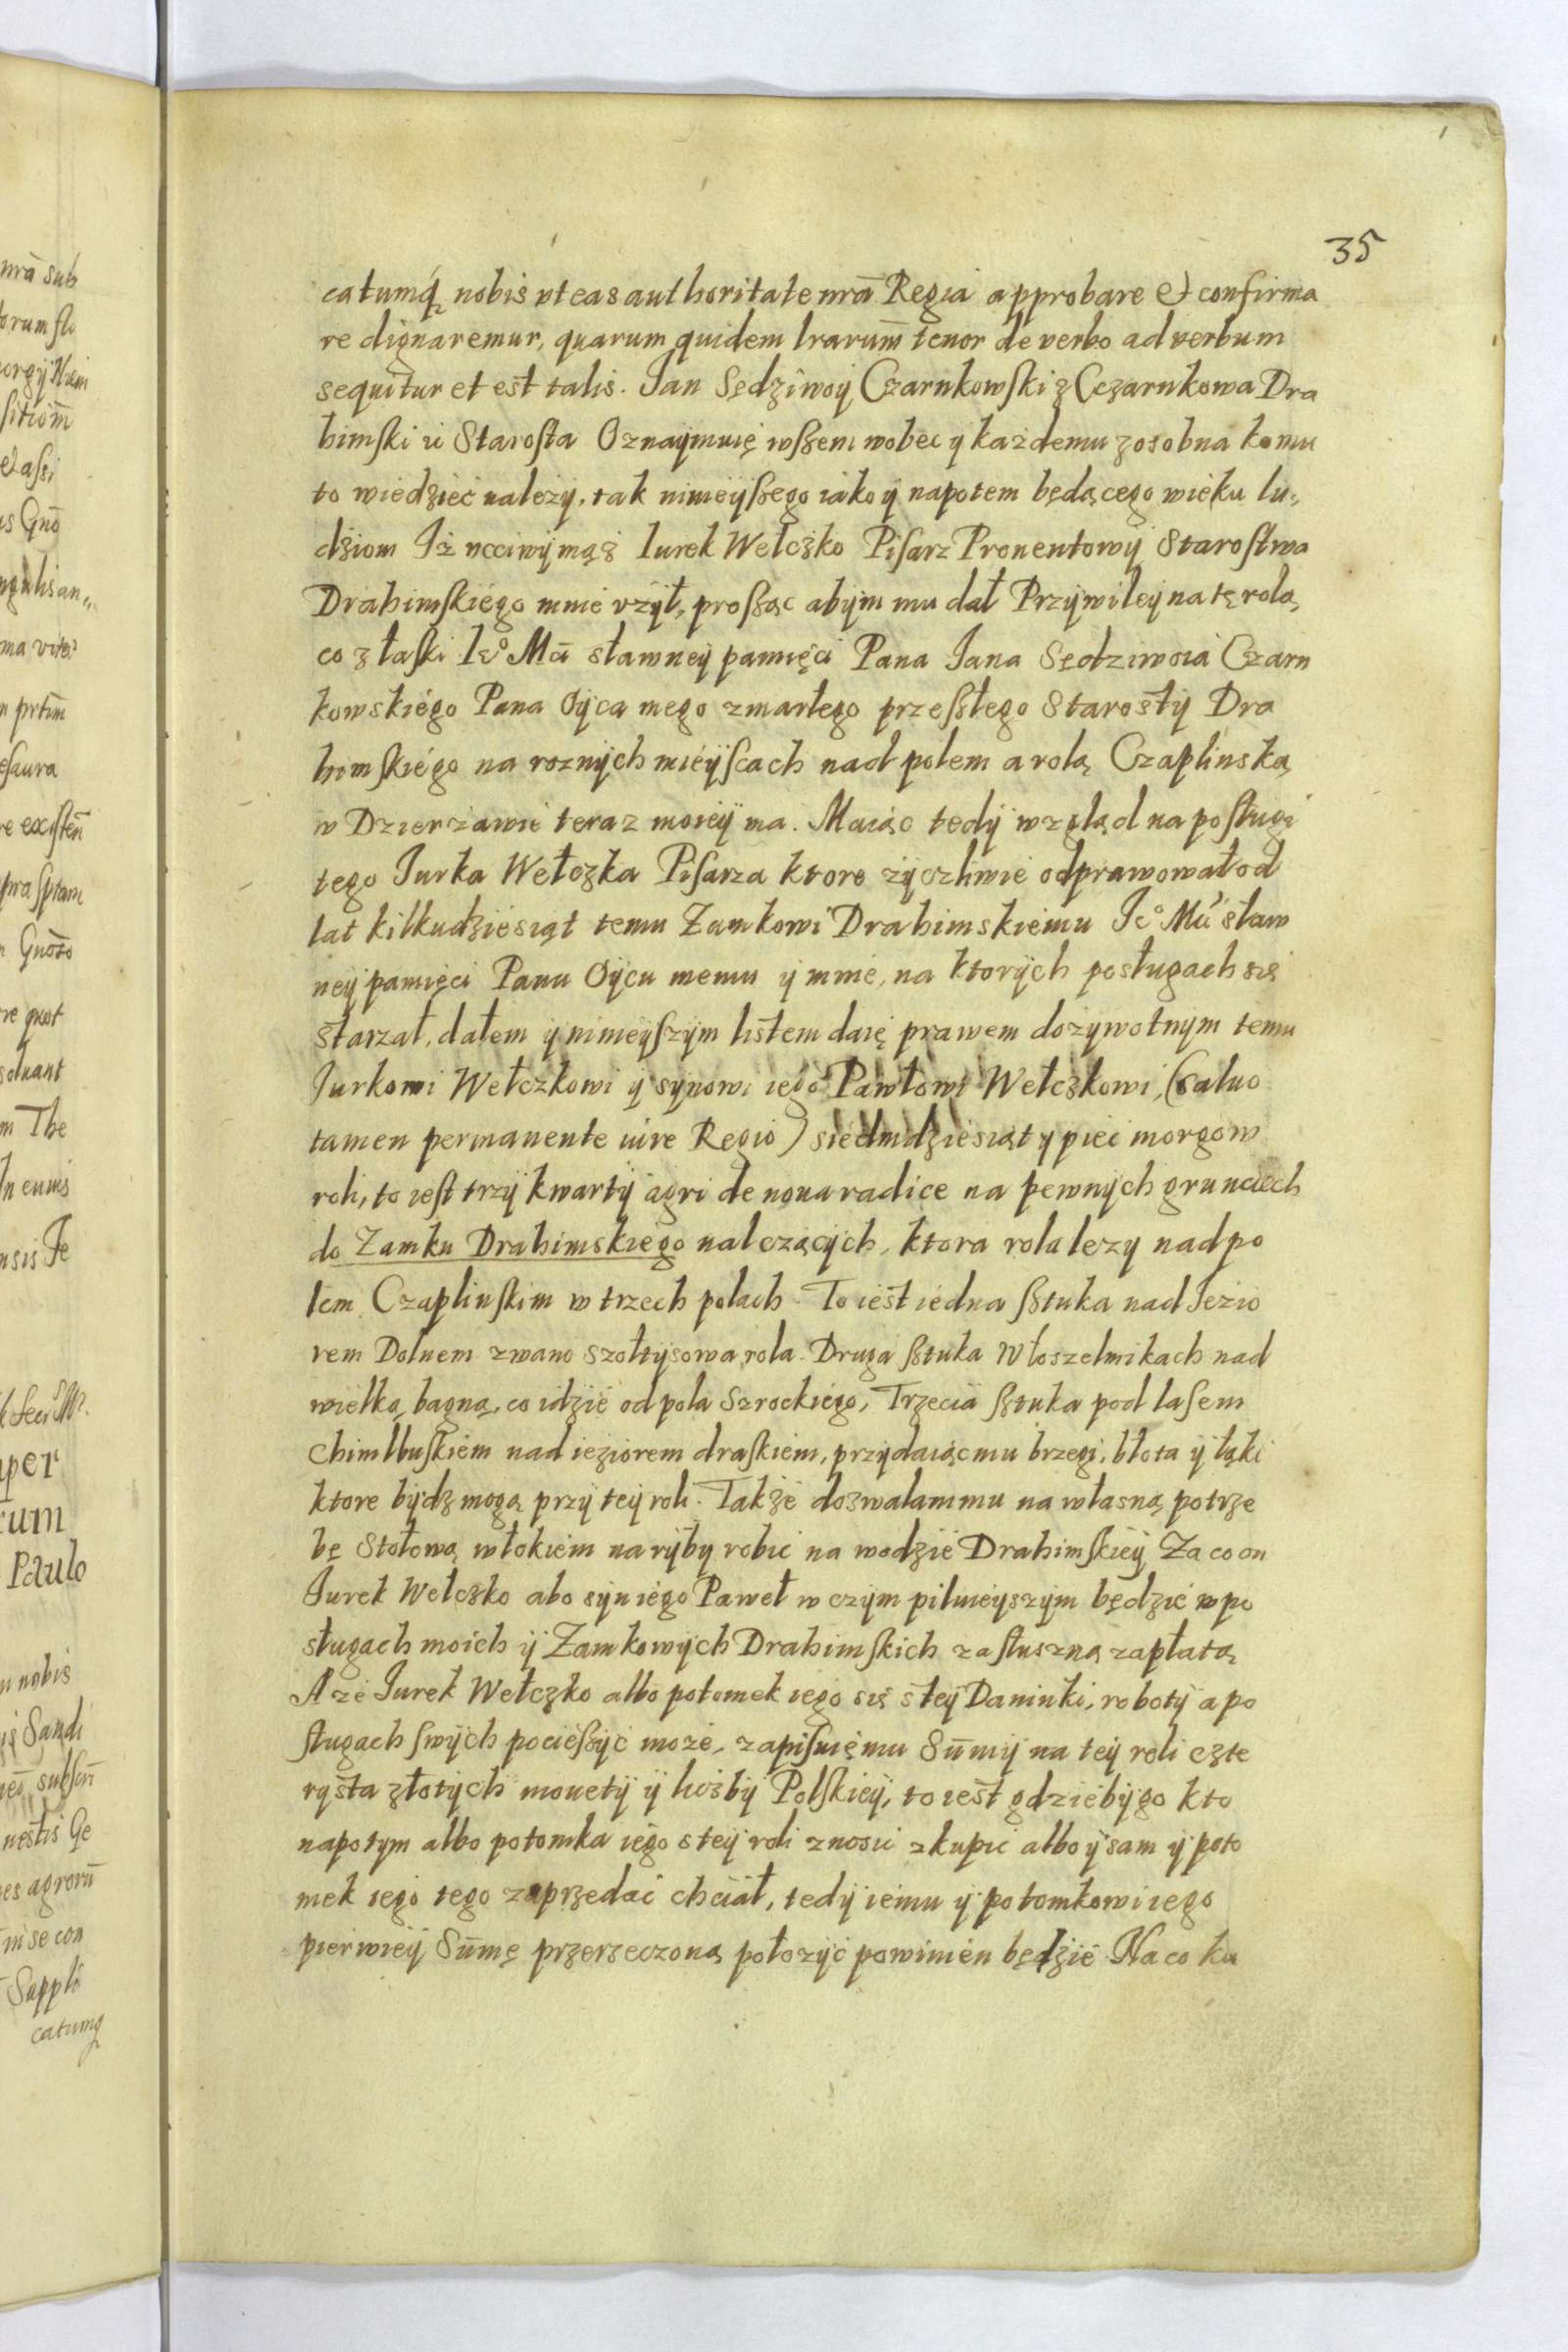 35
catumq́ nobis vt eas authoritate nrā Regia approbare et confirma
re dignaremur, quarum quidem lrarum̄ tenor de verbo ad verbum
sequitur et est talis. Jan Sędziwoy Czarnkowski z Czarnkowa Dra
himski ić Starosta Oznaymuię wßem wobec y każdemu zosobna komu
to wiedzieć należy, tak ninieyßego iako y napotem będącego wieku lu,,
dziom Iż ucciwy mąż Iurek Wełczko Pisarz Prouentowy Starostwa
Drahimskiégo mnie vżył, proßąc abym mu dał Przywiley na tę rolą,
co z łaski Ie° Mći sławney pamięci Pana Jana Sędziwoia Czarn
kowskiégo Pana Oyca mego zmarłego przeßłego Starosty Dra
himskiégo na roznych mieyscach nad polem a rolą Czaplinską
w Dzierżawie teraz moiey ma. Maiąc tedy wzgląd na posługi
tego Jurka Wełczka Pisarza ktore życzliwie odprawował od
lat kilkudziesiąt temu Zamkowi Drahimskiému Je° Mći sław
ney pamięci Panu Oycu memu y mnie, na ktorych posługach się
starzał, dałem y ninieyszym listem daię prawem dożywotnym temu
Jurkowi Wełczkowi y synowi iego Pawłowi Wełczkowi, (saluo
tamen permanente iure Regio) siedmdziesiąt y pieć morgow
roli, to iest trzy kwarty agri de noua radice na pewnych grunciech
do Zamku Drahimskiego należących, ktora rola leży nad po
lem Czaplinskim w trzech polach. To iest iedna ßtuka nad Jezio
rem Dolnem zwano szołtysowa rola. Druga ßtuka Włoszelnikach nad
wielką bagną, co idzie od pola Szrockiégo, Trzecia ßtuka pod lasem
Chimlbuskiém nad ieziorem draskiém, przydaiąc mu brzegi, błota y łąki
ktore bydz mogą przy tey roli. Także dozwalam mu na własną potrze
bę Stołową włokiem na ryby robić na wodzie Drahimskiéy Za co on
Jurek Wełczko abo syn iego Paweł w czym pilnieyszym będzie w po
sługach moich y Zamkowych Drahimskich za słuszną zapłatą
A że Jurek Wełczko albo potomek iego się s tey Daninki, roboty a po
sługach swych pocießyć może, zapisuię mu Sum̄y na tey roli czte
rysta złotych monety y liczby Polskiéy, to iest gdzieby go kto
napotym albo potomka iego s tey roli znosić zkupić albo y sam y poto
mek iego tego zaprzedać chciał, tedy iemu y potomkowi iego
pierwiey Sum̄ę przerzeczoną położyć powinien będzie Na co ku